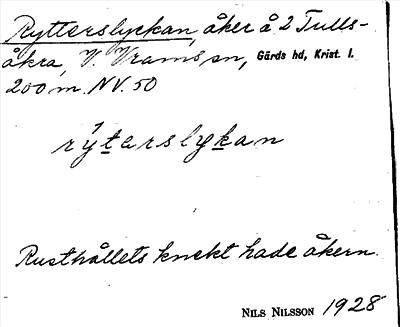 Rytterslyckan, åker å 2 Tulls-
åkra, V. Vrams sn, Gärds hd, Krist. l.
200 m. NV. 50
rýtarslykan
Rusthållets knekt hade åkern.
NILS NILSSON 1928